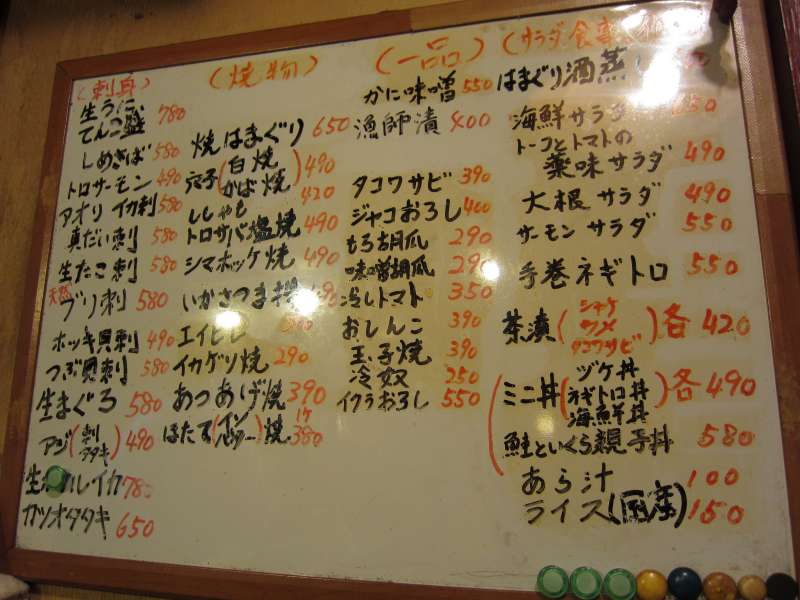 (刺身)
生うに
てんこ盛 780
しめさば 580
トロサーモン 490
アオリイカ刺 580
真だい刺 580
生たこ刺 580
天然
ブリ刺 580
ホッキ貝刺 490
つぶ貝刺 580
生まぐろ 580
アジ(刺 タタキ) 490
生 ルイカ 780
カツオタタキ 650
(焼物)
焼はまぐり 650
穴子(白焼 490
かば焼 420
ししゃも
トロサバ塩焼 490
シマホッケ焼 490
いかさつま揚
エイヒレ
イカゲソ焼 290
あつあげ焼 390
ほたて 焼 1ケ 380
(一品)
かに味噌 550
漁師漬 400
タコワサビ 390
ジャコおろし 400
もろ胡瓜 290
味噌胡瓜 290
冷しトマト 350
おしんこ 390
玉子焼 390
冷奴 250
イクラおろし 550
(サラダ 食事
はまぐり酒蒸し
海鮮サラダ
トーフとトマトの
薬味サラダ 490
大根サラダ 490
サーモンサラダ 550
手巻ネギトロ 550
茶漬(シャケ ウメ タコワサビ)各 420
ミニ丼(ヅケ丼 ネギトロ丼 海鮮丼)各 490
鮭といくら親子丼 580
あら汁 100
ライス(国産) 150